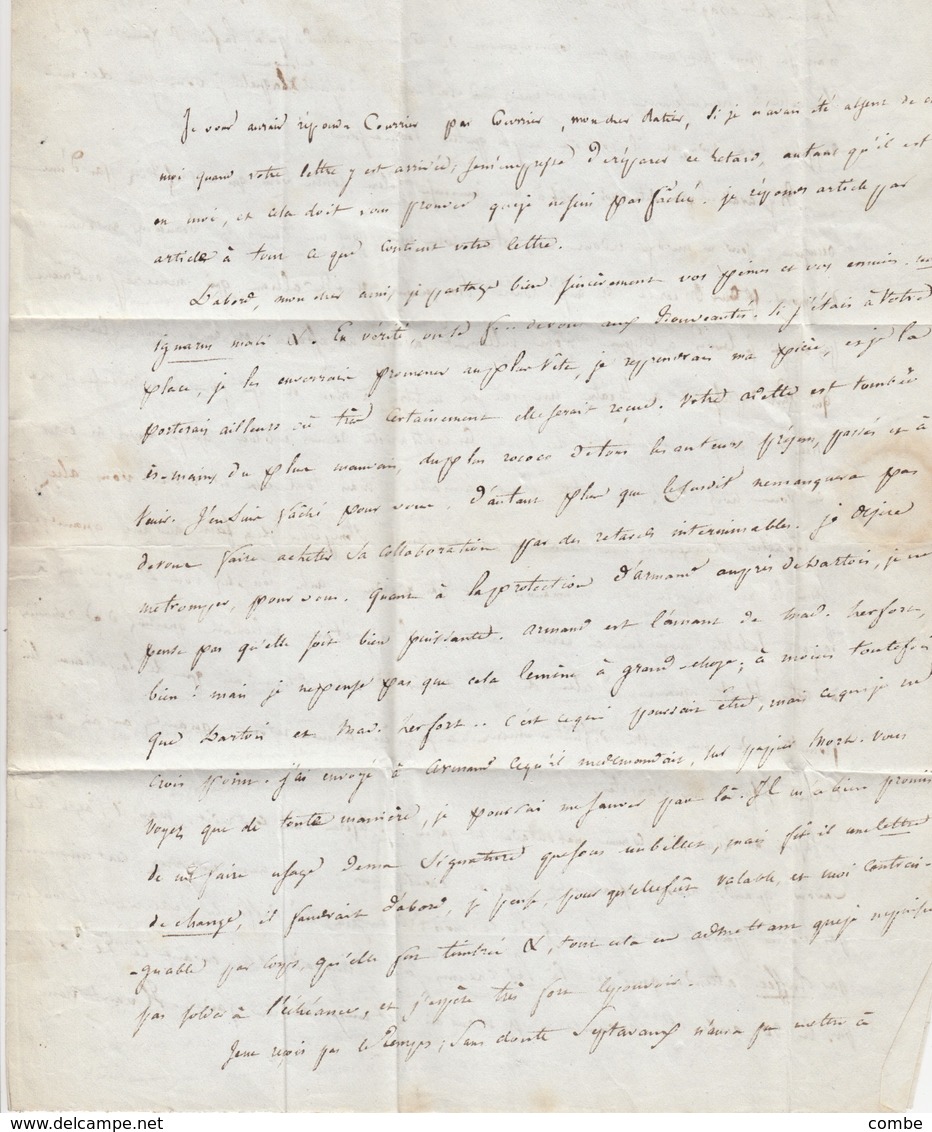 Je vous aurais répondu Courrier par Courrier, mon cher Ratier, si je n'avais été absent de
moi quand votre lettre y est arrivée; je m'empresse d'réparer ce retard, autant qu'il est
en moi, et cela doit vous prouver que je ne suis pas fâché. je réponds article par
article à tout ce que contient votre lettre.
D'abord, mon cher ami, je partage bien sincèrement vos peines et vos ennuis.
mati &. En vérité, on se aux Nouveautés. Si j'étais à Votre
place, je les enverrais promener au plus vite, je reprendrais ma pièce, et je la
porterais ailleurs où très certainement elle serait reçue. Votre adelle est tombée
ès-mains du plus mauvais, du plus rococo de tous les auteurs présens, passés et à
Venir. J'en suis fâché pour vous, d'autant plus que le susdit ne manquera pas
de vous faire acheter sa collaboration par des retards interminables. je désire
me tromper, pour vous. Quant à la protection d'armand auprès de dartois, je ne
pense pas qu'elle soit bien puissante. armand est l'amant de Mad. herfort,
bien! mais je ne pense pas que cela le mène à grand-chose; à moins toutefois
que Dartois et Mad. herfort.. c'est ce qui pourrait être, mais ce que je ne
crois point. j'ai envoyé à Armand ce qu'il me demandait, sur papier mort. Vous
voyez que de toute manière, je pourrai me sauver par là. Il m'a bien promis
de ne faire usage de ma signature que sous un billet, mais fit-il une lettre
de change, il faudrait d'abord, je pense, pour qu'elle fût valable, et moi contrai-
-gnable par corps, qu'elle fut timbrée &, tout cela en admettant que je ne puisse
pas solder à l'échéance, et j'espère très fort le pouvoir.
Je ne reçois pas le Temps; Sans doute Septavaux n'aura pu mettre à
combe